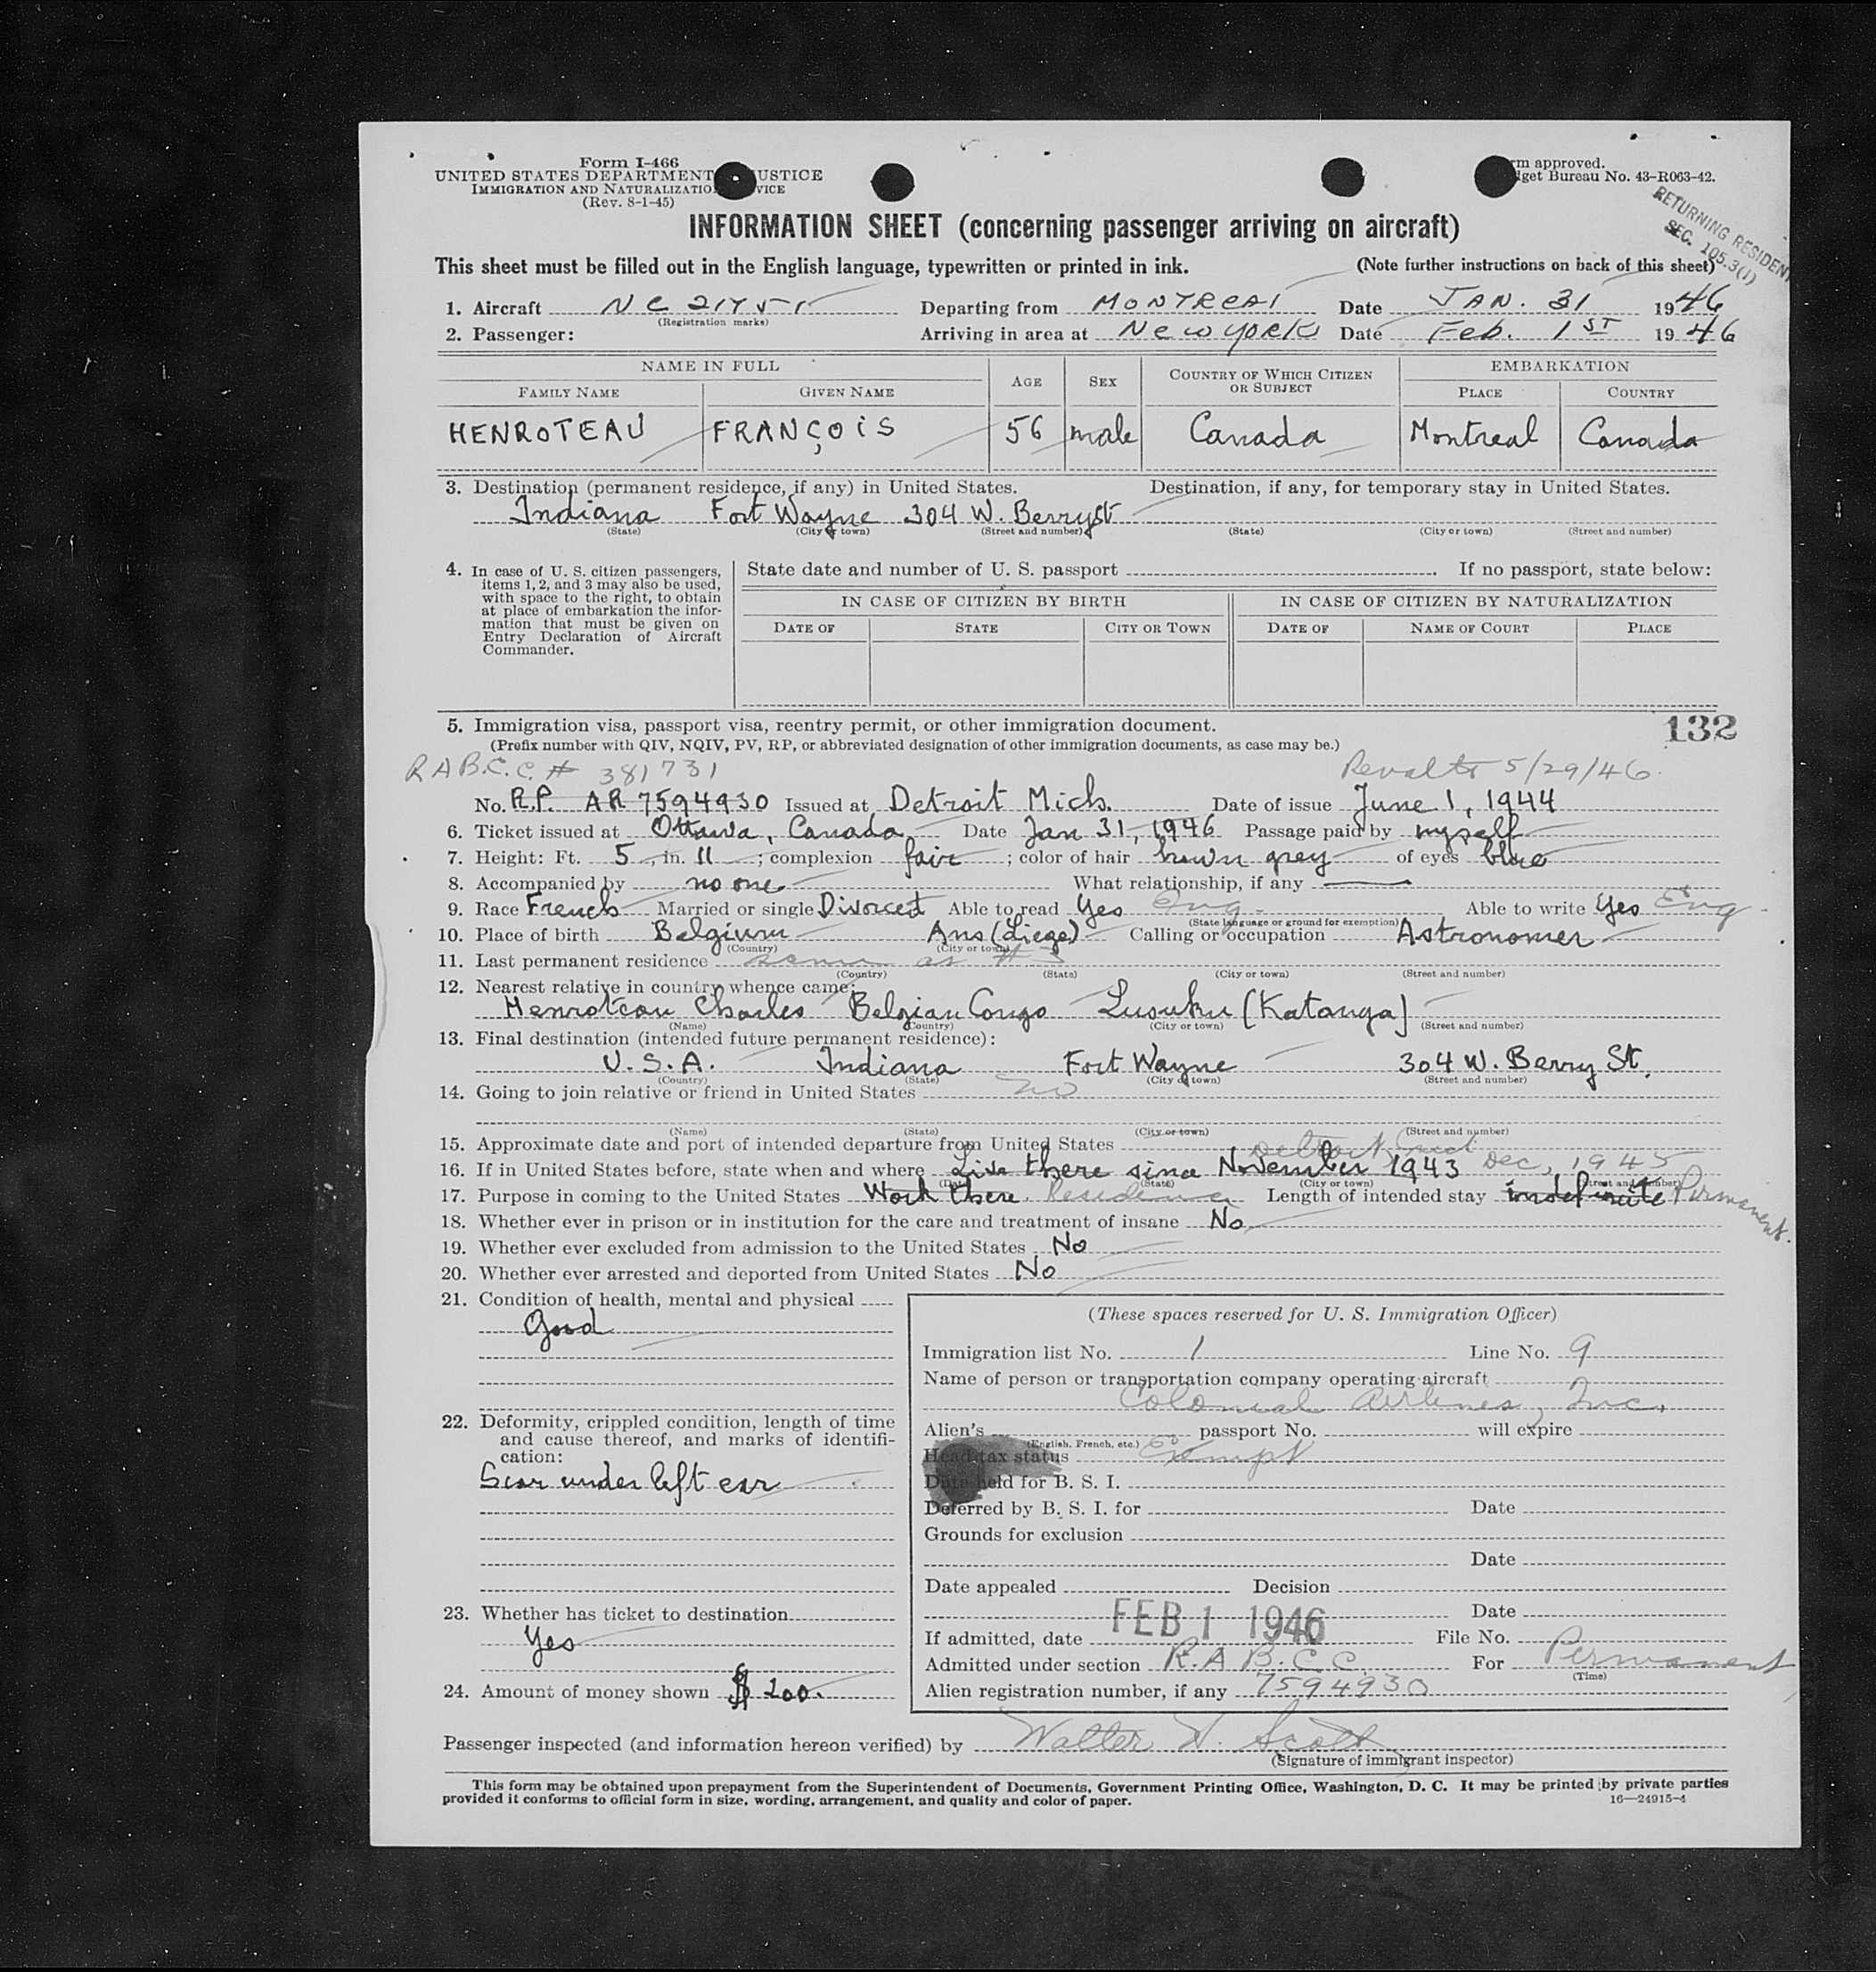 Form I-466
UNITED STATES DEPARTMENT JUSTICE
IMMIGRATION AND NATURALIZATION SERVICE
(Rev. 8-1-45)
rm approved.
dget Bureau No. 43-R063-42.
RETURNING RESIDENT
SEC. 105.3(1)
INFORMATION SHEET (concerning passenger arriving on aircraft)
This sheet must be filled out in the English language, typewritten or printed in ink. (Note further instructions on back of this sheet)
1. Aircraft (Registration marks) Departing from MONTREAL Date JAN. 31 1946
2. Passenger: Arriving in area at New york Date Feb. 1ST 1946
NAME IN FULL AGE SEX COUNTRY OF WHICH CITIZEN OR SUBJECT EMBARKATION
FAMILY NAME GIVEN NAME PLACE COUNTRY
HENROTEAU FRANÇOIS 56 male Canada Montreal Canada
3. Destination (permanent residence, if any) in United States. Destination, if any, for temporary stay in United States.
Indiana Fort Wayne 304 W. Berry St
(State) (City or town) (Street and number) (State) (City or town) (Street and number)
4. In case of U. S. citizen passengers, items 1, 2, and 3 may also be used, with space to the right, to obtain at place of embarkation the information that must be given on Entry Declaration of Aircraft Commander.
State date and number of U. S. passport If no passport, state below:
IN CASE OF CITIZEN BY BIRTH IN CASE OF CITIZEN BY NATURALIZATION
DATE OF STATE CITY OR TOWN DATE OF NAME OF COURT PLACE
5. Immigration visa, passport visa, reentry permit, or other immigration document. 132
(Prefix number with QIV, NQIV, PV, RP, or abbreviated designation of other immigration documents, as case may be.)
R A B.C.C. # 381731 5/29/46
No. R.P. AR 7594930 Issued at Detroit Mich. Date of issue June 1, 1944
6. Ticket issued at Ottawa, Canada Date Jan 31, 1946 Passage paid by myself
7. Height: Ft. 5, in. 11; complexion fair; color of hair brown grey of eyes blue
8. Accompanied by no one What relationship, if any —
9. Race French Married or single Divorced Able to read Yes Eng (State language or ground for exemption) Able to write Yes Eng
10. Place of birth Belgium (Country) Ans (Liege) (City or town) Calling or occupation Astronomer
11. Last permanent residence same as # 3
(Country) (State) (City or town) (Street and number)
12. Nearest relative in country whence came:
Henroteau Charles Belgian Congo Lusuku [Katanga]
(Name) (Country) (City or town) (Street and number)
13. Final destination (intended future permanent residence):
U.S.A. Indiana Fort Wayne 304 W. Berry St.
(Country) (State) (City or town) (Street and number)
14. Going to join relative or friend in United States no
(Name) (State) (City or town) (Street and number)
15. Approximate date and port of intended departure from United States
16. If in United States before, state when and where Live there since November 1943 Detroit Mich Dec, 1945
(Date) (State) (City or town) (Street and number)
17. Purpose in coming to the United States Work there. Residence Length of intended stay indefinite Permanent.
18. Whether ever in prison or in institution for the care and treatment of insane No
19. Whether ever excluded from admission to the United States No
20. Whether ever arrested and deported from United States No
21. Condition of health, mental and physical
Good
22. Deformity, crippled condition, length of time and cause thereof, and marks of identification:
Scar under left ear
23. Whether has ticket to destination
Yes
24. Amount of money shown $ 200.
(These spaces reserved for U. S. Immigration Officer)
Immigration list No. 1 Line No. 9
Name of person or transportation company operating aircraft
Colonial Airlines, Inc.
Alien's (English, French, etc.) passport No. will expire
Head tax status Exempt
Date held for B. S. I.
Deferred by B. S. I. for Date
Grounds for exclusion
Date
Date appealed Decision
Date
If admitted, date FEB 1 1946 File No.
Admitted under section R.A B.C.C. For Permanent
(Time)
Alien registration number, if any 7594930
Passenger inspected (and information hereon verified) by Walter W. Scott
(Signature of immigrant inspector)
This form may be obtained upon prepayment from the Superintendent of Documents, Government Printing Office, Washington, D. C. It may be printed by private parties
provided it conforms to official form in size, wording, arrangement, and quality and color of paper. 16—24915-4